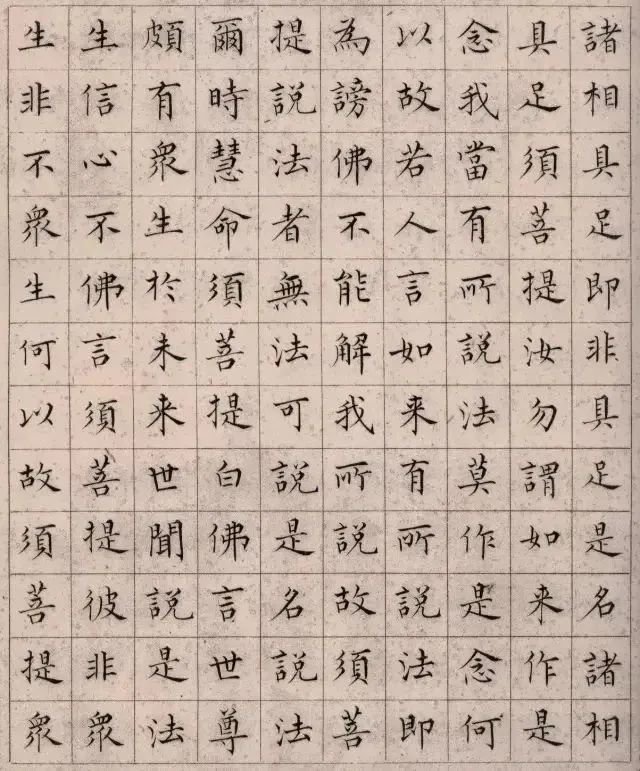 諸相具足即非具足是名諸相
具足須菩提汝勿謂如来作是
念我當有所說法莫作是念何
以故若人言如来有所說法即
為謗佛不能解我所說故須菩
提說法者無法可說是名說法
爾時慧命須菩提白佛言世尊
頗有衆生於未来世聞說是法
生信心不佛言須菩提彼非衆
生非不衆生何以故須菩提衆